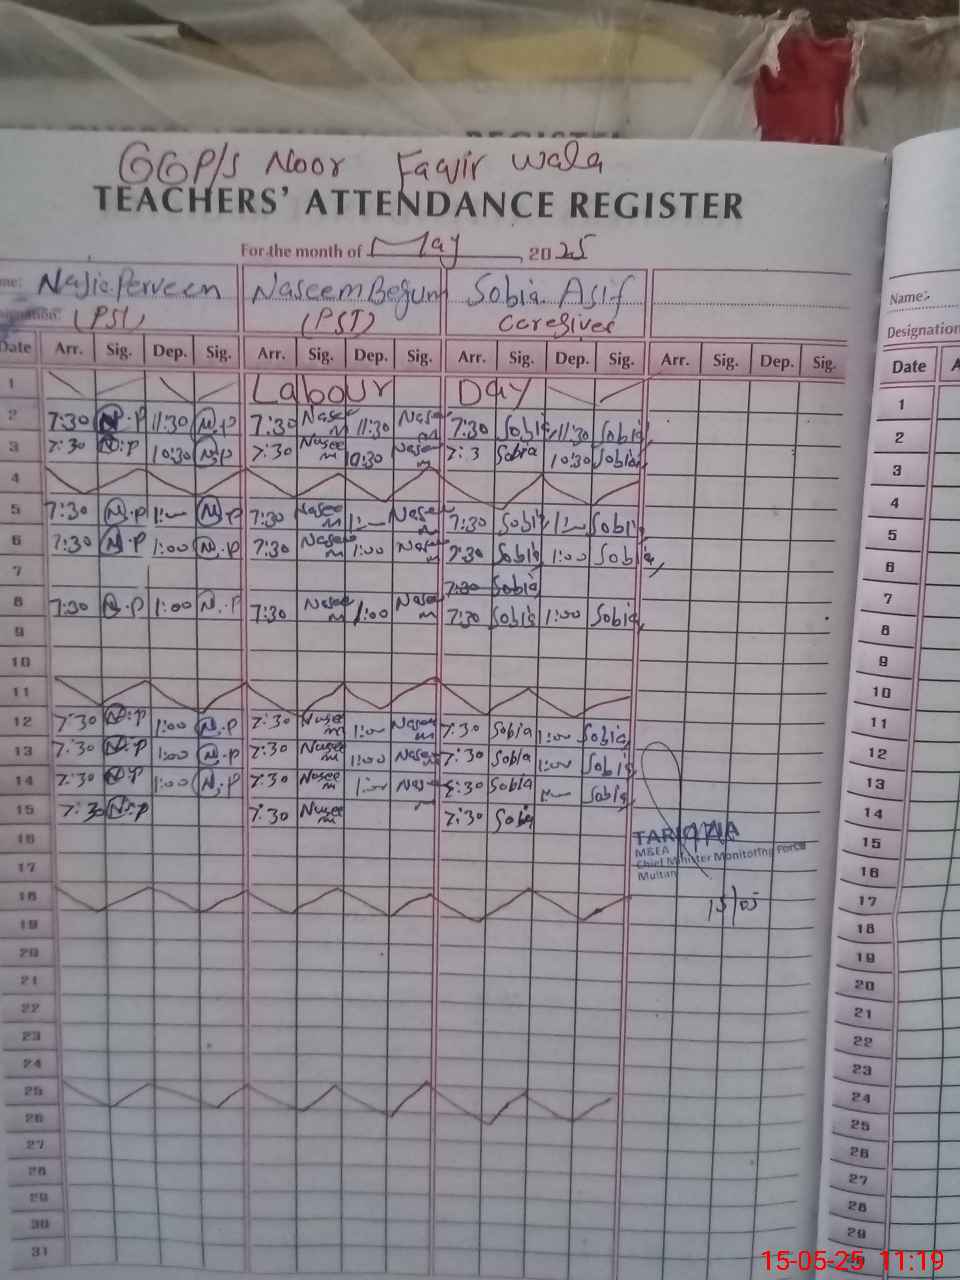 GGP/S Noor Faqir Wala
TEACHERS' ATTENDANCE REGISTER
For the month of May 2025
me: Najia Perveen Naseem Begum Sobia Asif
Designation: (PST) (PST) Caregiver
Date Arr. Sig. Dep. Sig. Arr. Sig. Dep. Sig. Arr. Sig. Dep. Sig. Arr. Sig. Dep. Sig.
1 Labour Day
2 7:30 N.P 11:30 N.P 7:30 Naseem 11:30 Naseem 7:30 Sobia 11:30 Sobia
3 7:30 N.P 10:30 N.P 7:30 Naseem 10:30 Naseem 7:3 Sobia 10:30 Sobia
4
5 7:30 N.P 1:— N.P 7:30 Naseem 1:— Naseem 7:30 Sobia 1:— Sobia
6 7:30 N.P 1:00 N.P 7:30 Naseem 1:00 Naseem 7:30 Sobia 1:00 Sobia
7 7:30 Sobia
8 7:30 N.P 1:00 N.P 7:30 Naseem 1:00 Naseem 7:30 Sobia 1:00 Sobia
9
10
11
12 7:30 N.P 1:00 N.P 7:30 Naseem 1:00 Naseem 7:30 Sobia 1:00 Sobia
13 7:30 N.P 1:00 N.P 7:30 Naseem 1:00 Naseem 7:30 Sobia 1:00 Sobia
14 7:30 N.P 1:00 N.P 7:30 Naseem 1:— Naseem :30 Sobia Sobia
15 7:30 N.P 7:30 Naseem 7:30 Sobia
16
17
18
19
20
21
22
23
24
25
26
27
28
29
30
31
M&EA
Chief Minister Monitoring Force
Multan
15/05
Name:
Designation
Date A
1
2
3
4
5
6
7
8
9
10
11
12
13
14
15
16
17
18
19
20
21
22
23
24
25
26
27
28
29
15-05-25 11:19